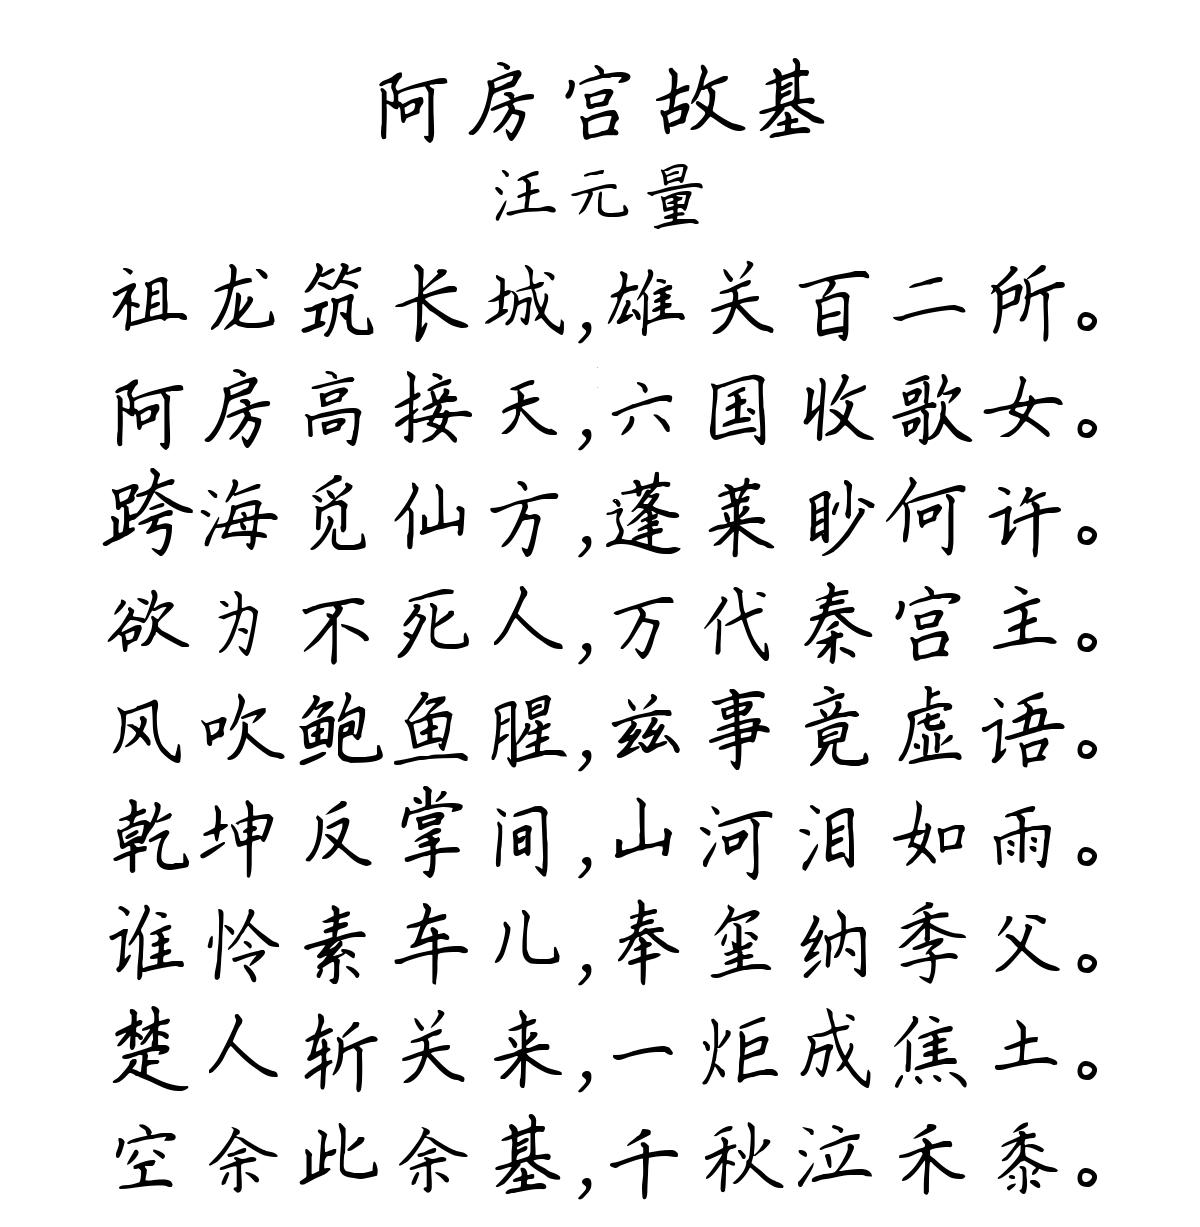 阿房宫故基
汪元量
祖龙筑长城,雄关百二所。
阿房高接天,六国收歌女。
跨海觅仙方,蓬莱眇何许。
欲为不死人,万代秦宫主。
风吹鲍鱼腥,兹事竟虚语。
乾坤反掌间,山河泪如雨。
谁怜素车儿,奉玺纳季父。
楚人斩关来,一炬成焦土。
空余此余基,千秋泣禾黍。